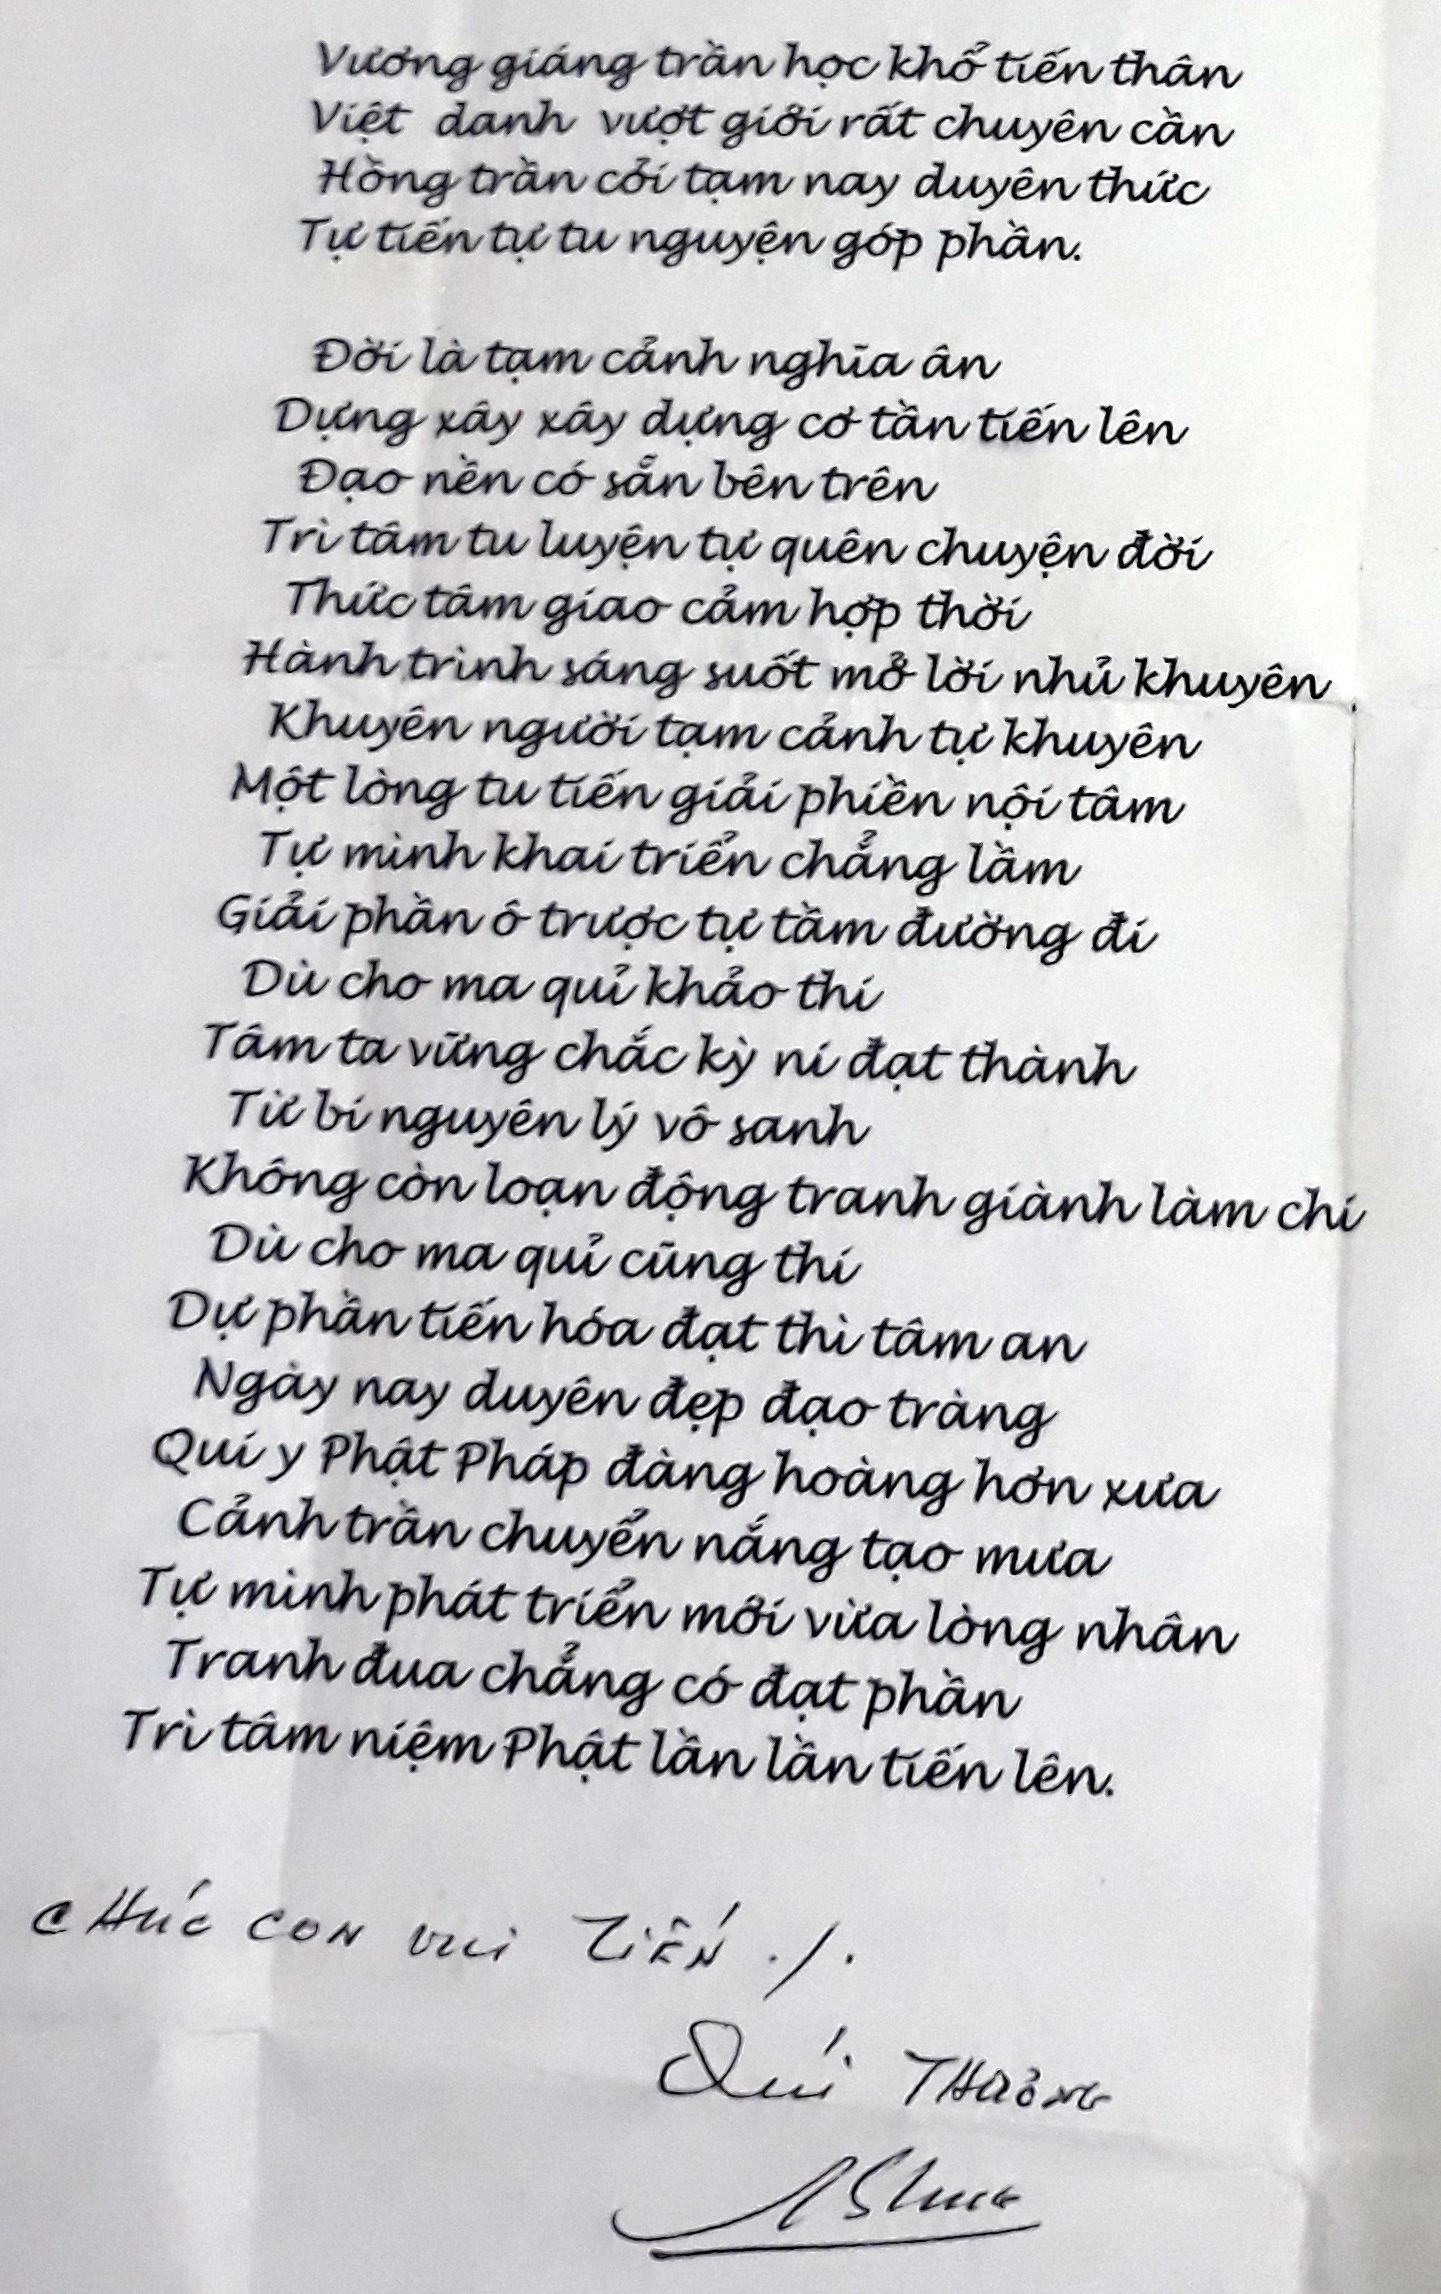 Vương giáng trần học khổ tiến thân
Việt danh vượt giới rất chuyên cần
Hồng trần cỏi tạm nay duyên thức
Tự tiến tự tu nguyện góp phần.
Đời là tạm cảnh nghĩa ân
Dựng xây xây dựng cơ tần tiến lên
Đạo nền có sẵn bên trên
Trì tâm tu luyện tự quên chuyện đời
Thức tâm giao cảm hợp thời
Hành trình sáng suốt mở lời nhủ khuyên
Khuyên người tạm cảnh tự khuyên
Một lòng tu tiến giải phiền nội tâm
Tự mình khai triển chẳng lầm
Giải phần ô trược tự tầm đường đi
Dù cho ma quỉ khảo thi
Tâm ta vững chắc kỳ ni đạt thành
Từ bi nguyên lý vô sanh
Không còn loạn động tranh giành làm chi
Dù cho ma quỉ cũng thi
Dự phần tiến hóa đạt thì tâm an
Ngày nay duyên đẹp đạo tràng
Qui y Phật Pháp đàng hoàng hơn xưa
Cảnh trần chuyển nắng tạo mưa
Tự mình phát triển mới vừa lòng nhân
Tranh đua chẳng có đạt phần
Trì tâm niệm Phật lần lần tiến lên.
CHÚC CON vui TIẾN ./.
Quí THƯỞNG